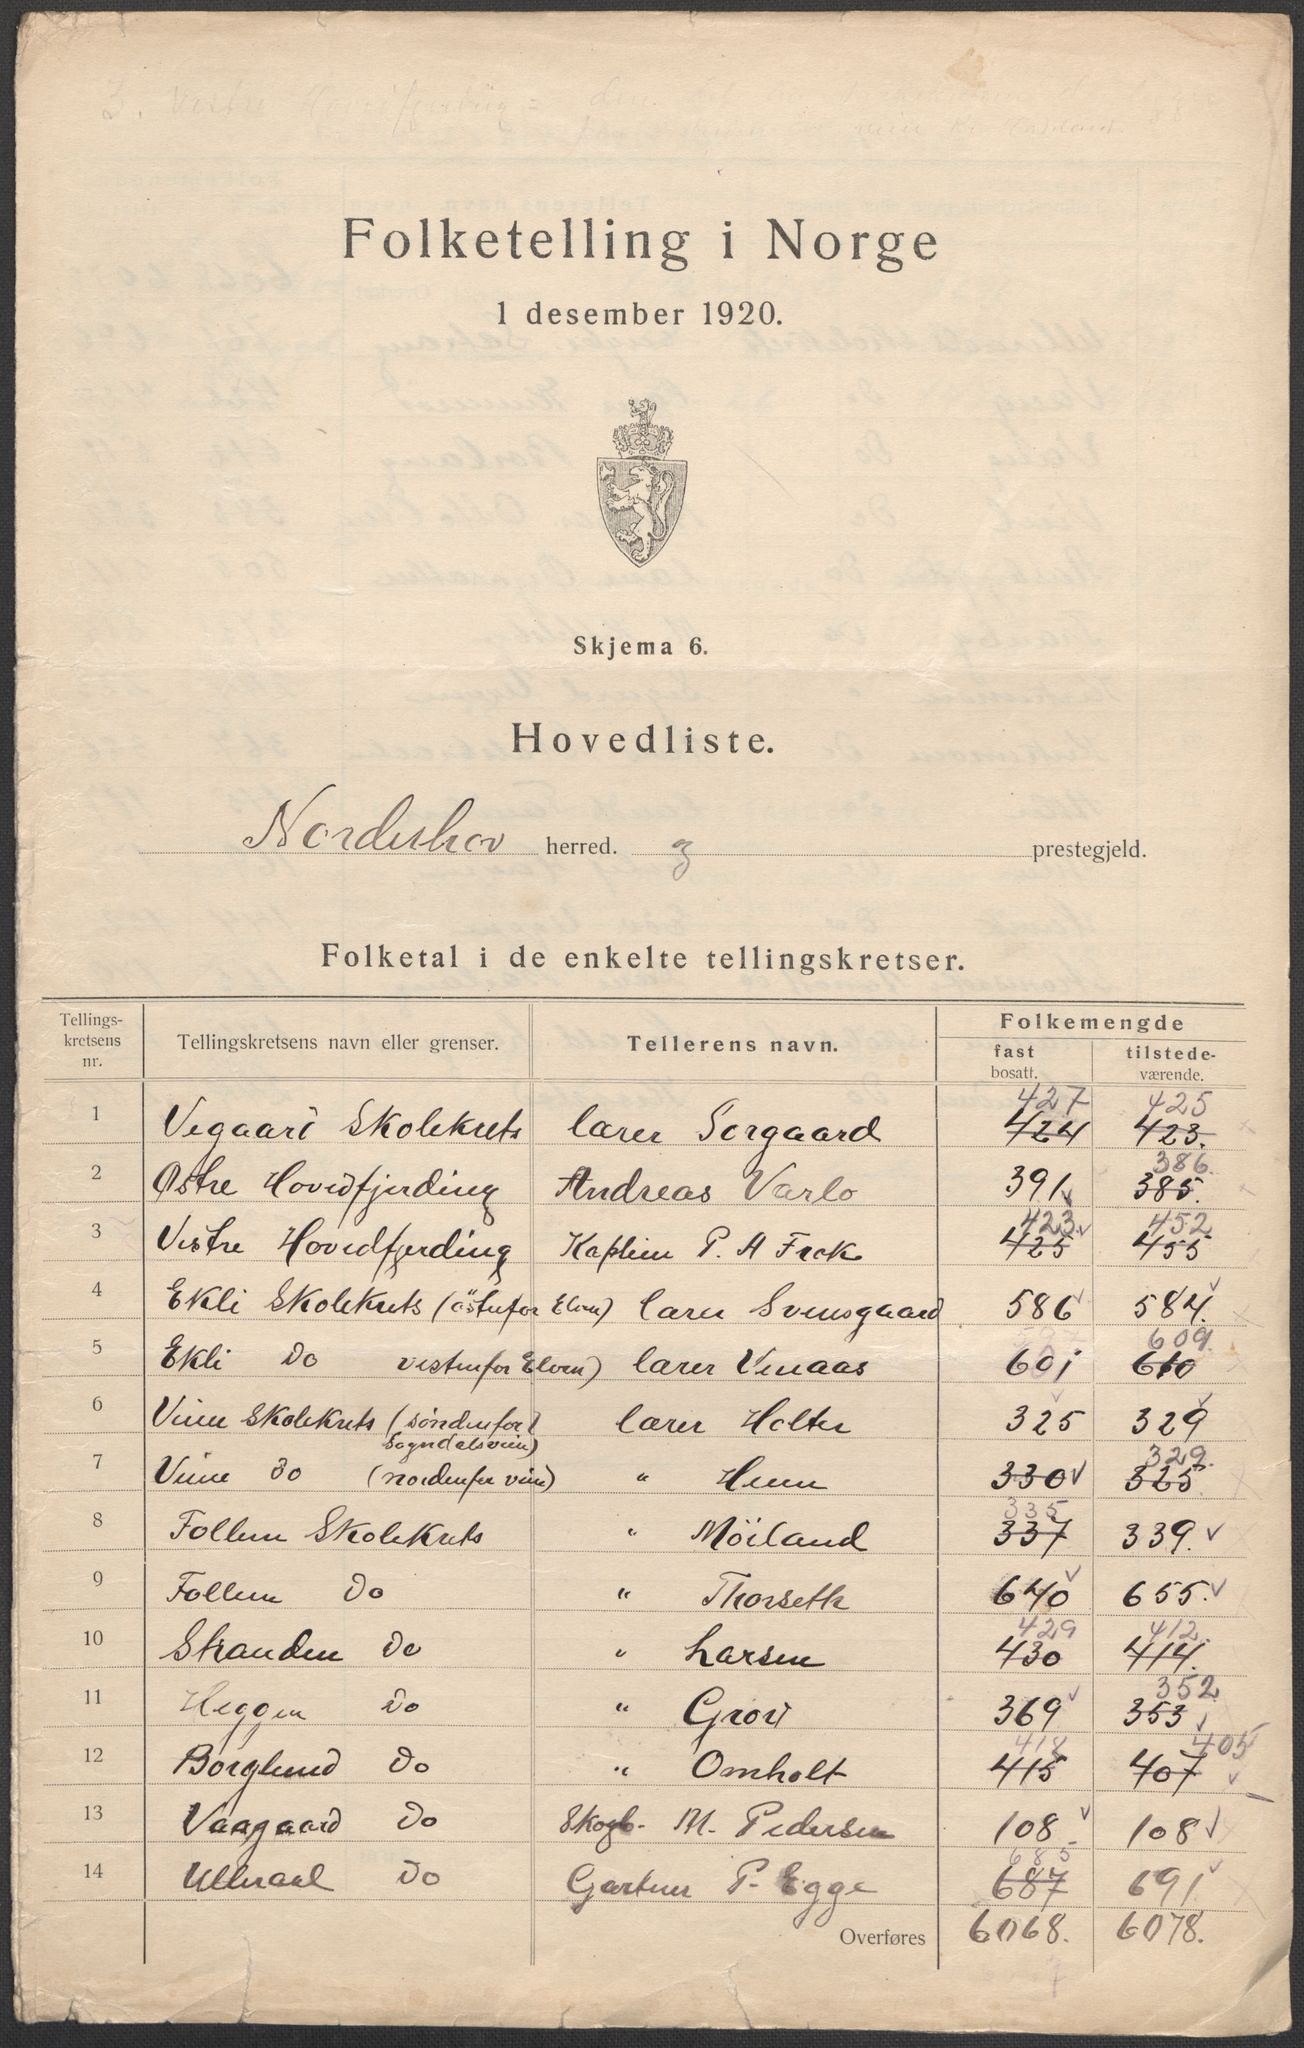 Folketelling i Norge
1 desember 1920.
Skjema 6.
Hovedliste.
Norderhov herred. og prestegjeld.
Folketal i de enkelte tellingskretser.
Tellings-kretsens nr. Tellingskretsens navn eller grenser. Tellerens navn. Folkemengde
fast bosatt. tilstede-værende.
427 425
1 Vegaard Skolekrets lærer Sorgaard 424 423.
386.
2 Østre Hovedfjerding Andreas Varlo 391 385.
423 452
3 Vestre Hovedfjerding Kaptein P. A Frok 425 455
4 Ekli Skolekrets (östenfor Elven) lærer Svensgaard 586 584.
609.
5 Ekli Do vestenfor Elven) lærer Venaas 601 610
6 Veme Skolekrets (söndenfor Sogndalsveien) lærer Holter 325 329
329.
7 Veme Do (nordenfor veien) " Hem 330 325.
335
8 Follum Skolekrets " Möiland 337 339.
9 Follum Do " Thorseth 640 655.
429 412.
10 Stranden Do " Larsen 430 414.
352
11 Heggen Do " Grov 369 353
418 405
12 Borglund Do " Omholt 415 407
13 Vaagaard Do Skogb. M. Pedersen 108 108
685
14 Ulleraal Do Gartner P. Egge 687 691
Overføres 6068. 6078.